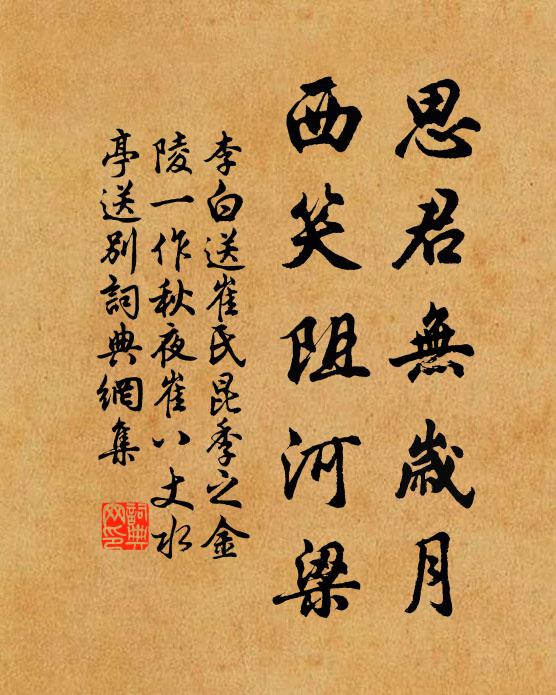 思君無歲月
西笑阻河梁
李白送崔氏昆季之金
陵一作秋夜崔八丈水
亭送別詞典網集
詞典
网印